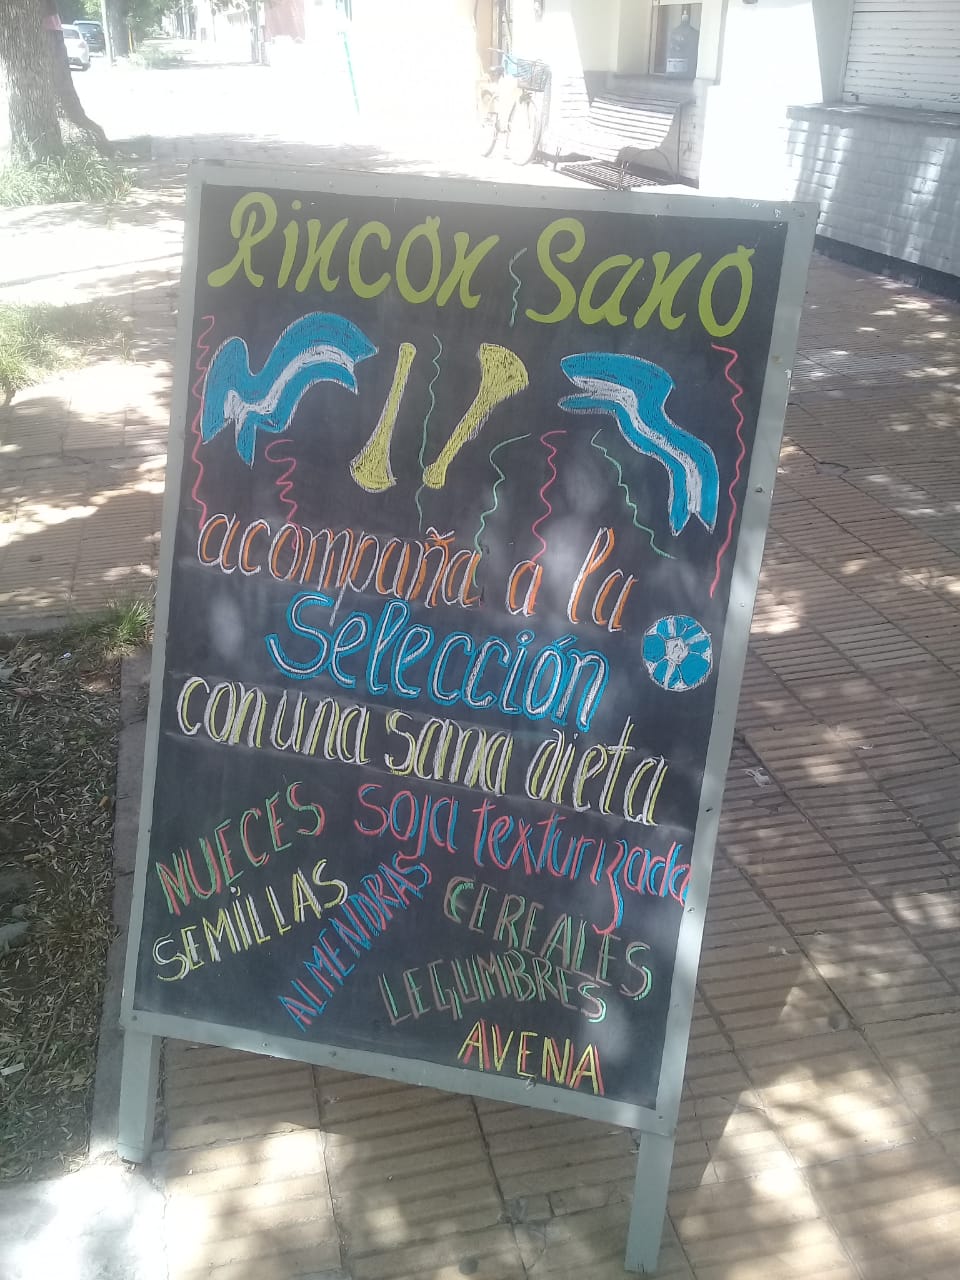 Rincón Sano
acompaña a la
Selección
con una sana dieta
NUECES
soja texturizada
SEMILLAS
ALMENDRAS
CEREALES
LEGUMBRES
AVENA